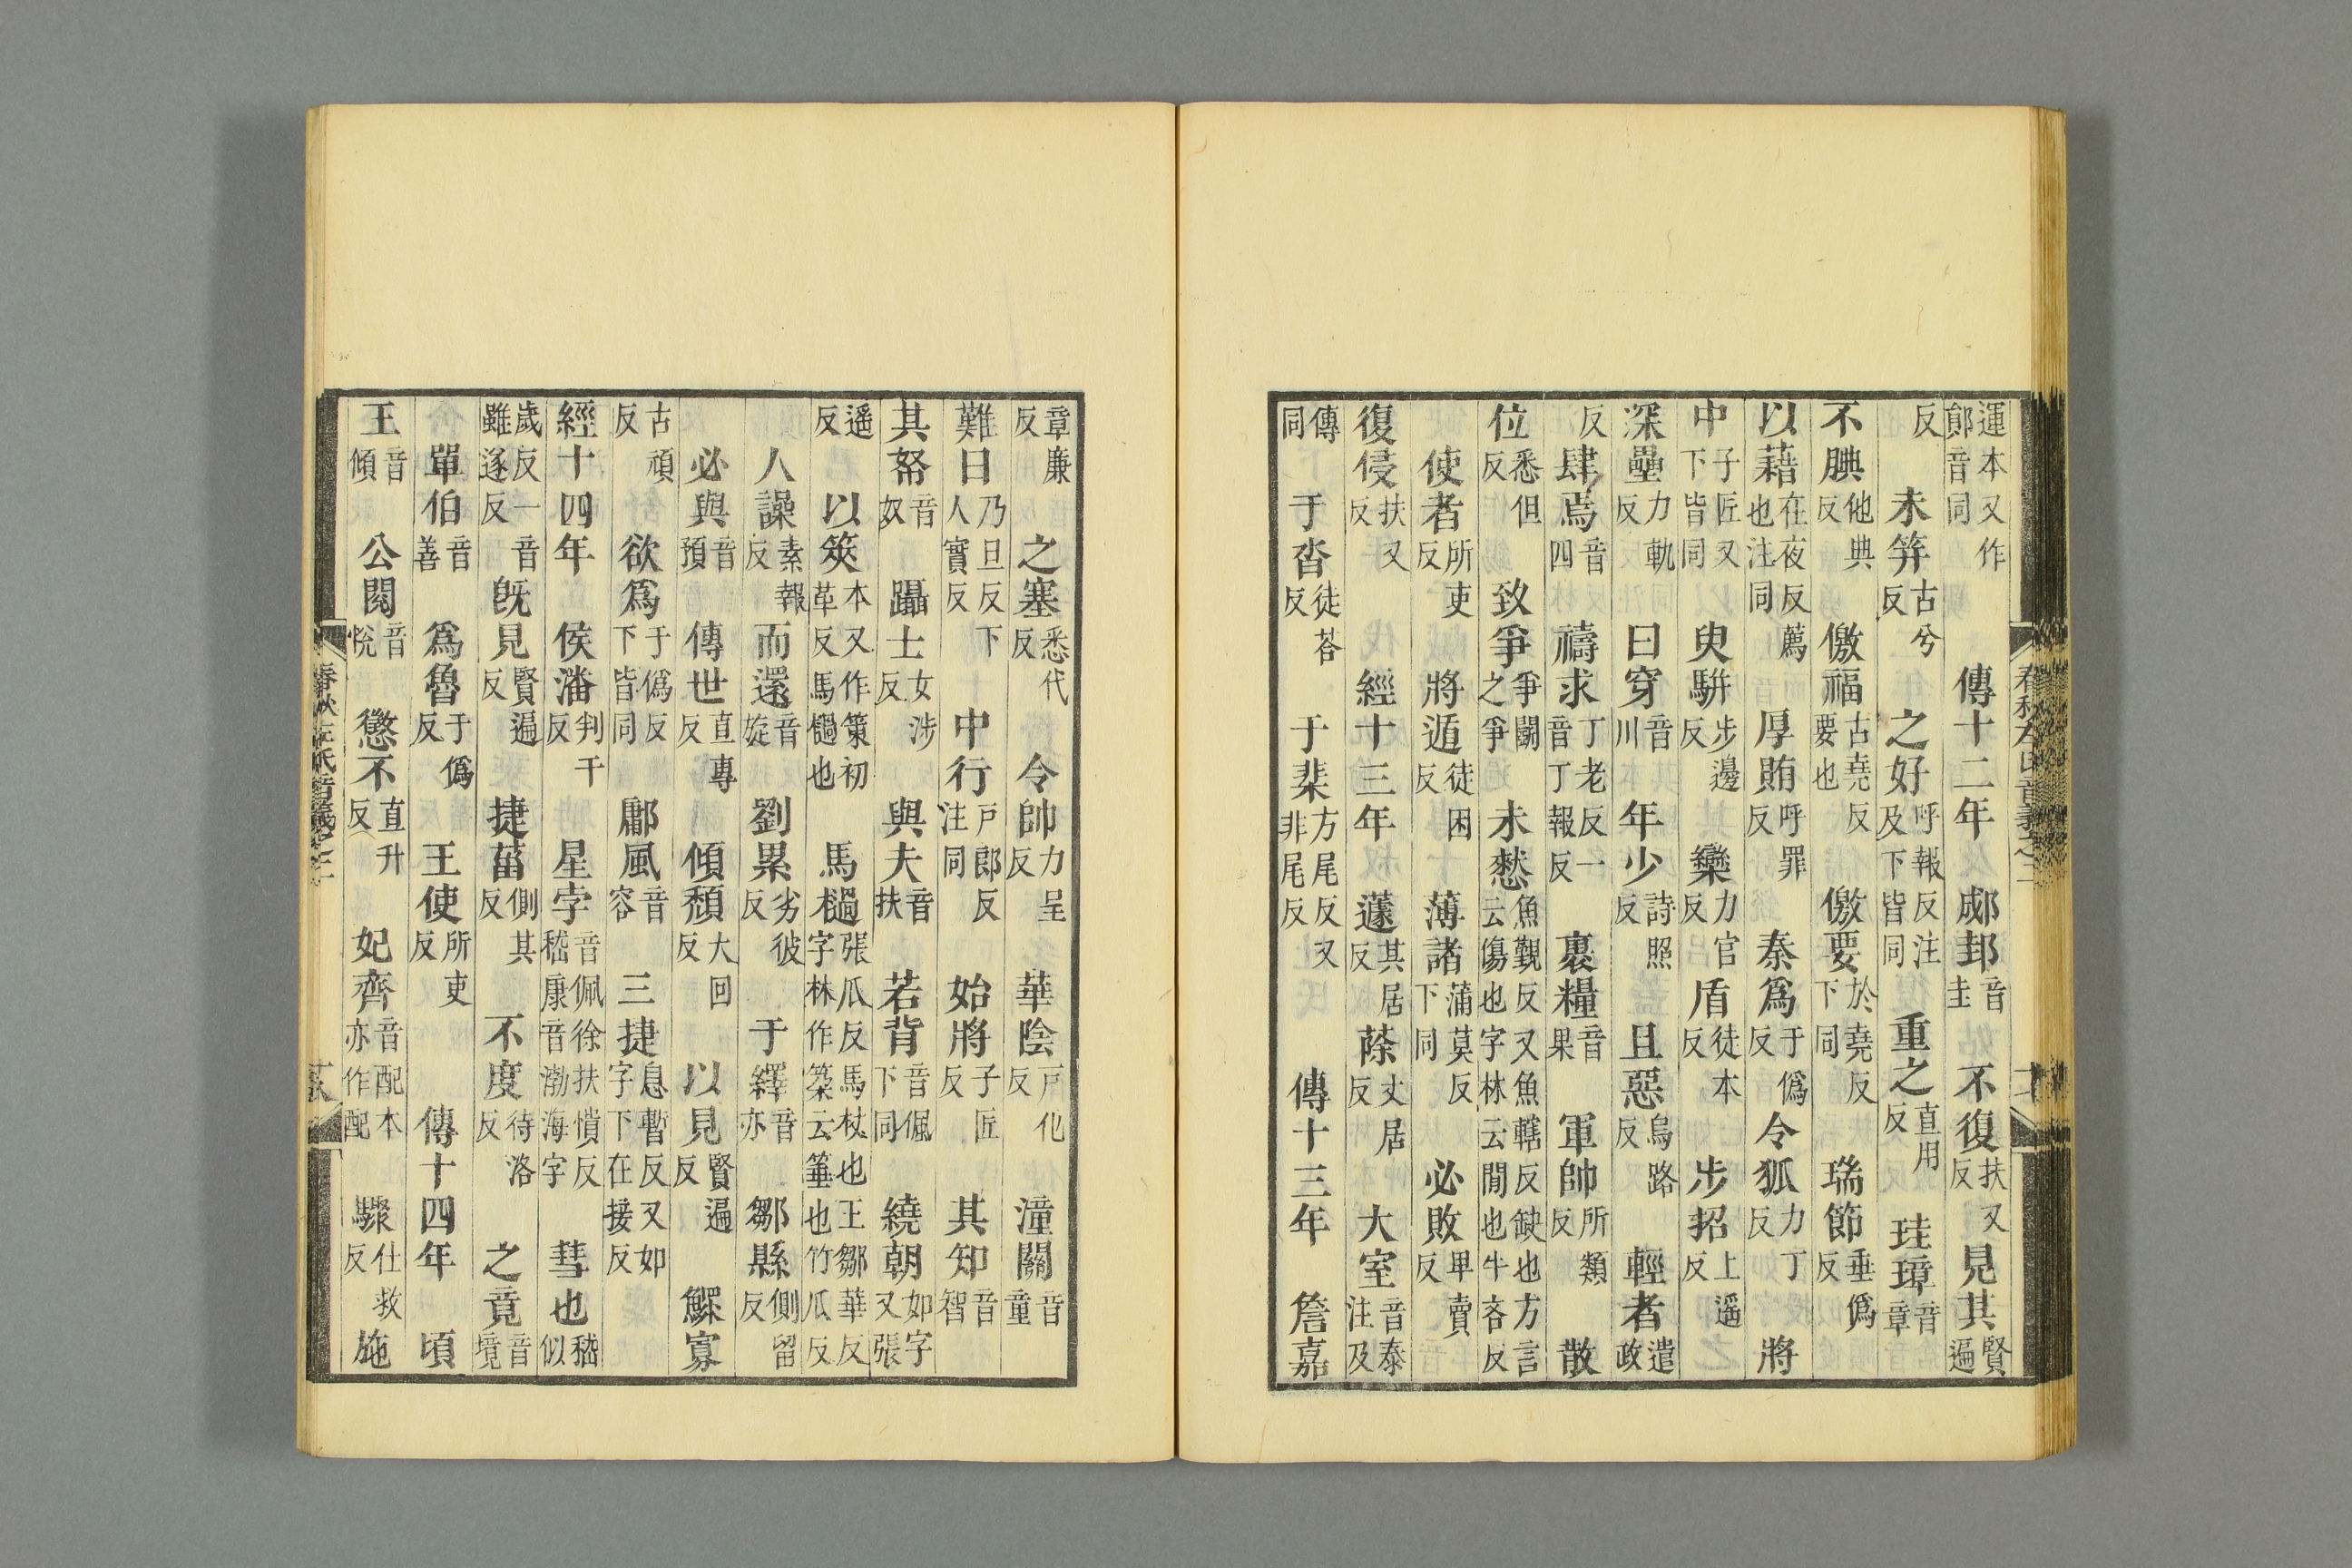 運本又作鄖音同 傳十二年 郕邽音圭 不復扶又反 見其賢遍
反 未笄古兮反 之好呼報反注及下皆同 重之直用反 珪璋音章
不腆他典反 儌福古堯反要也 儌要於堯反下同 瑞節垂僞反
以藉在夜反薦也注同 厚賄呼罪反 秦爲于僞反 令狐力丁反 將
中子匠又下皆同 臾騈步邊反 欒力官反 盾徒本反 步招上遥反
深壘力軌反 曰穿音川 年少詩照反 且惡烏路反 輕者遣政
反 肆焉音四 禱求丁老反一音丁報反 裹糧音果 軍帥所類反 散
位悉但反 致爭爭鬭之爭 未憖魚覲反又魚轄反缺也方言云傷也字林云閒也牛吝反
使者所吏反 將遁徒困反 薄諸蒲莫反下同 必敗卑賣反
復侵扶又反 經十三年 蘧其居反 蒢丈居反 大室音泰注及
傳同 于沓徒荅反 于棐方尾反又非尾反 傳十三年 詹嘉
章廉反 之塞悉代反 令帥力呈反 華陰戸化反 潼關音童
難曰乃旦反下人實反 中行戸郎反注同 始將子匠反 其知音智
其帑音奴 躡士女涉反 與夫音扶 若背音佩下同 繞朝如字又張
遥反 以筴本又作策初革反馬檛也 馬檛張瓜反馬杖也王鄒華反字林作䇬云箠也竹瓜反
人譟素報反 而還音旋 劉累劣彼反 于繹音亦 鄒縣側留反
必與音預 傳世直專反 傾頽大回反 以見賢遍反 鰥寡
古頑反 欲爲于僞反下皆同 鄘風音容 三捷息暫反又如字下在接反
經十四年 侯潘判干反 星孛音佩徐扶憒反嵇康音渤海字 彗也嵇似
歲反一音雖遂反 旣見賢遍反 捷菑側其反 不度待洛反 之竟音境
單伯音善 爲魯于僞反 王使所吏反 傳十四年 頃
王音傾 公閱音悅 懲不直升反 妃齊音配本亦作配 驟仕救反 施
春秋左氏音義之二